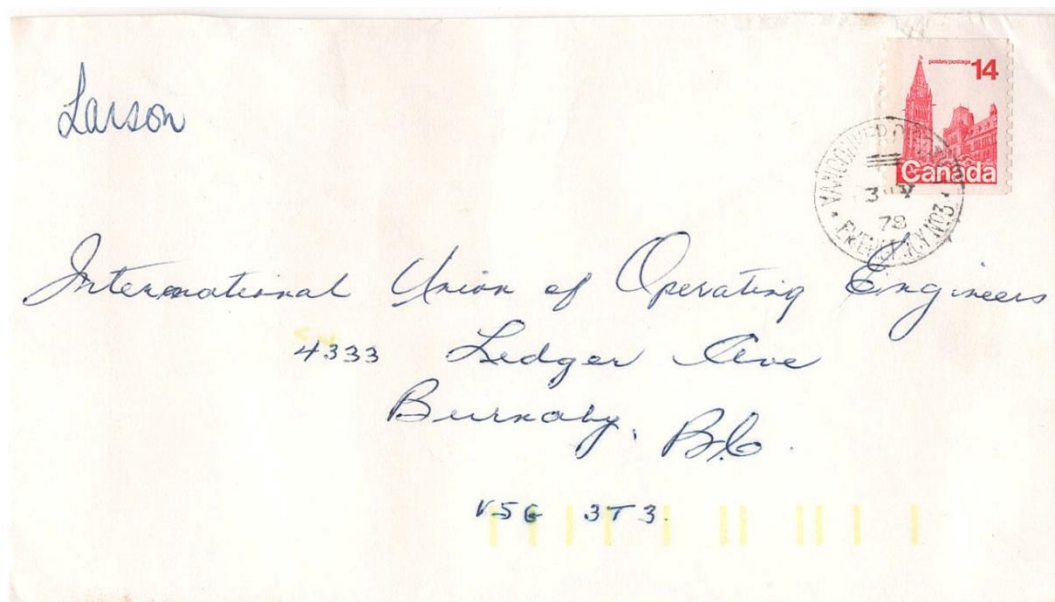 Larson
postes/postage 14
Canada
VANCOUVER
3
78
International Union of Operating Engineers
4333 Ledger Ave
Burnaby, B.C.
V5G 3T3.